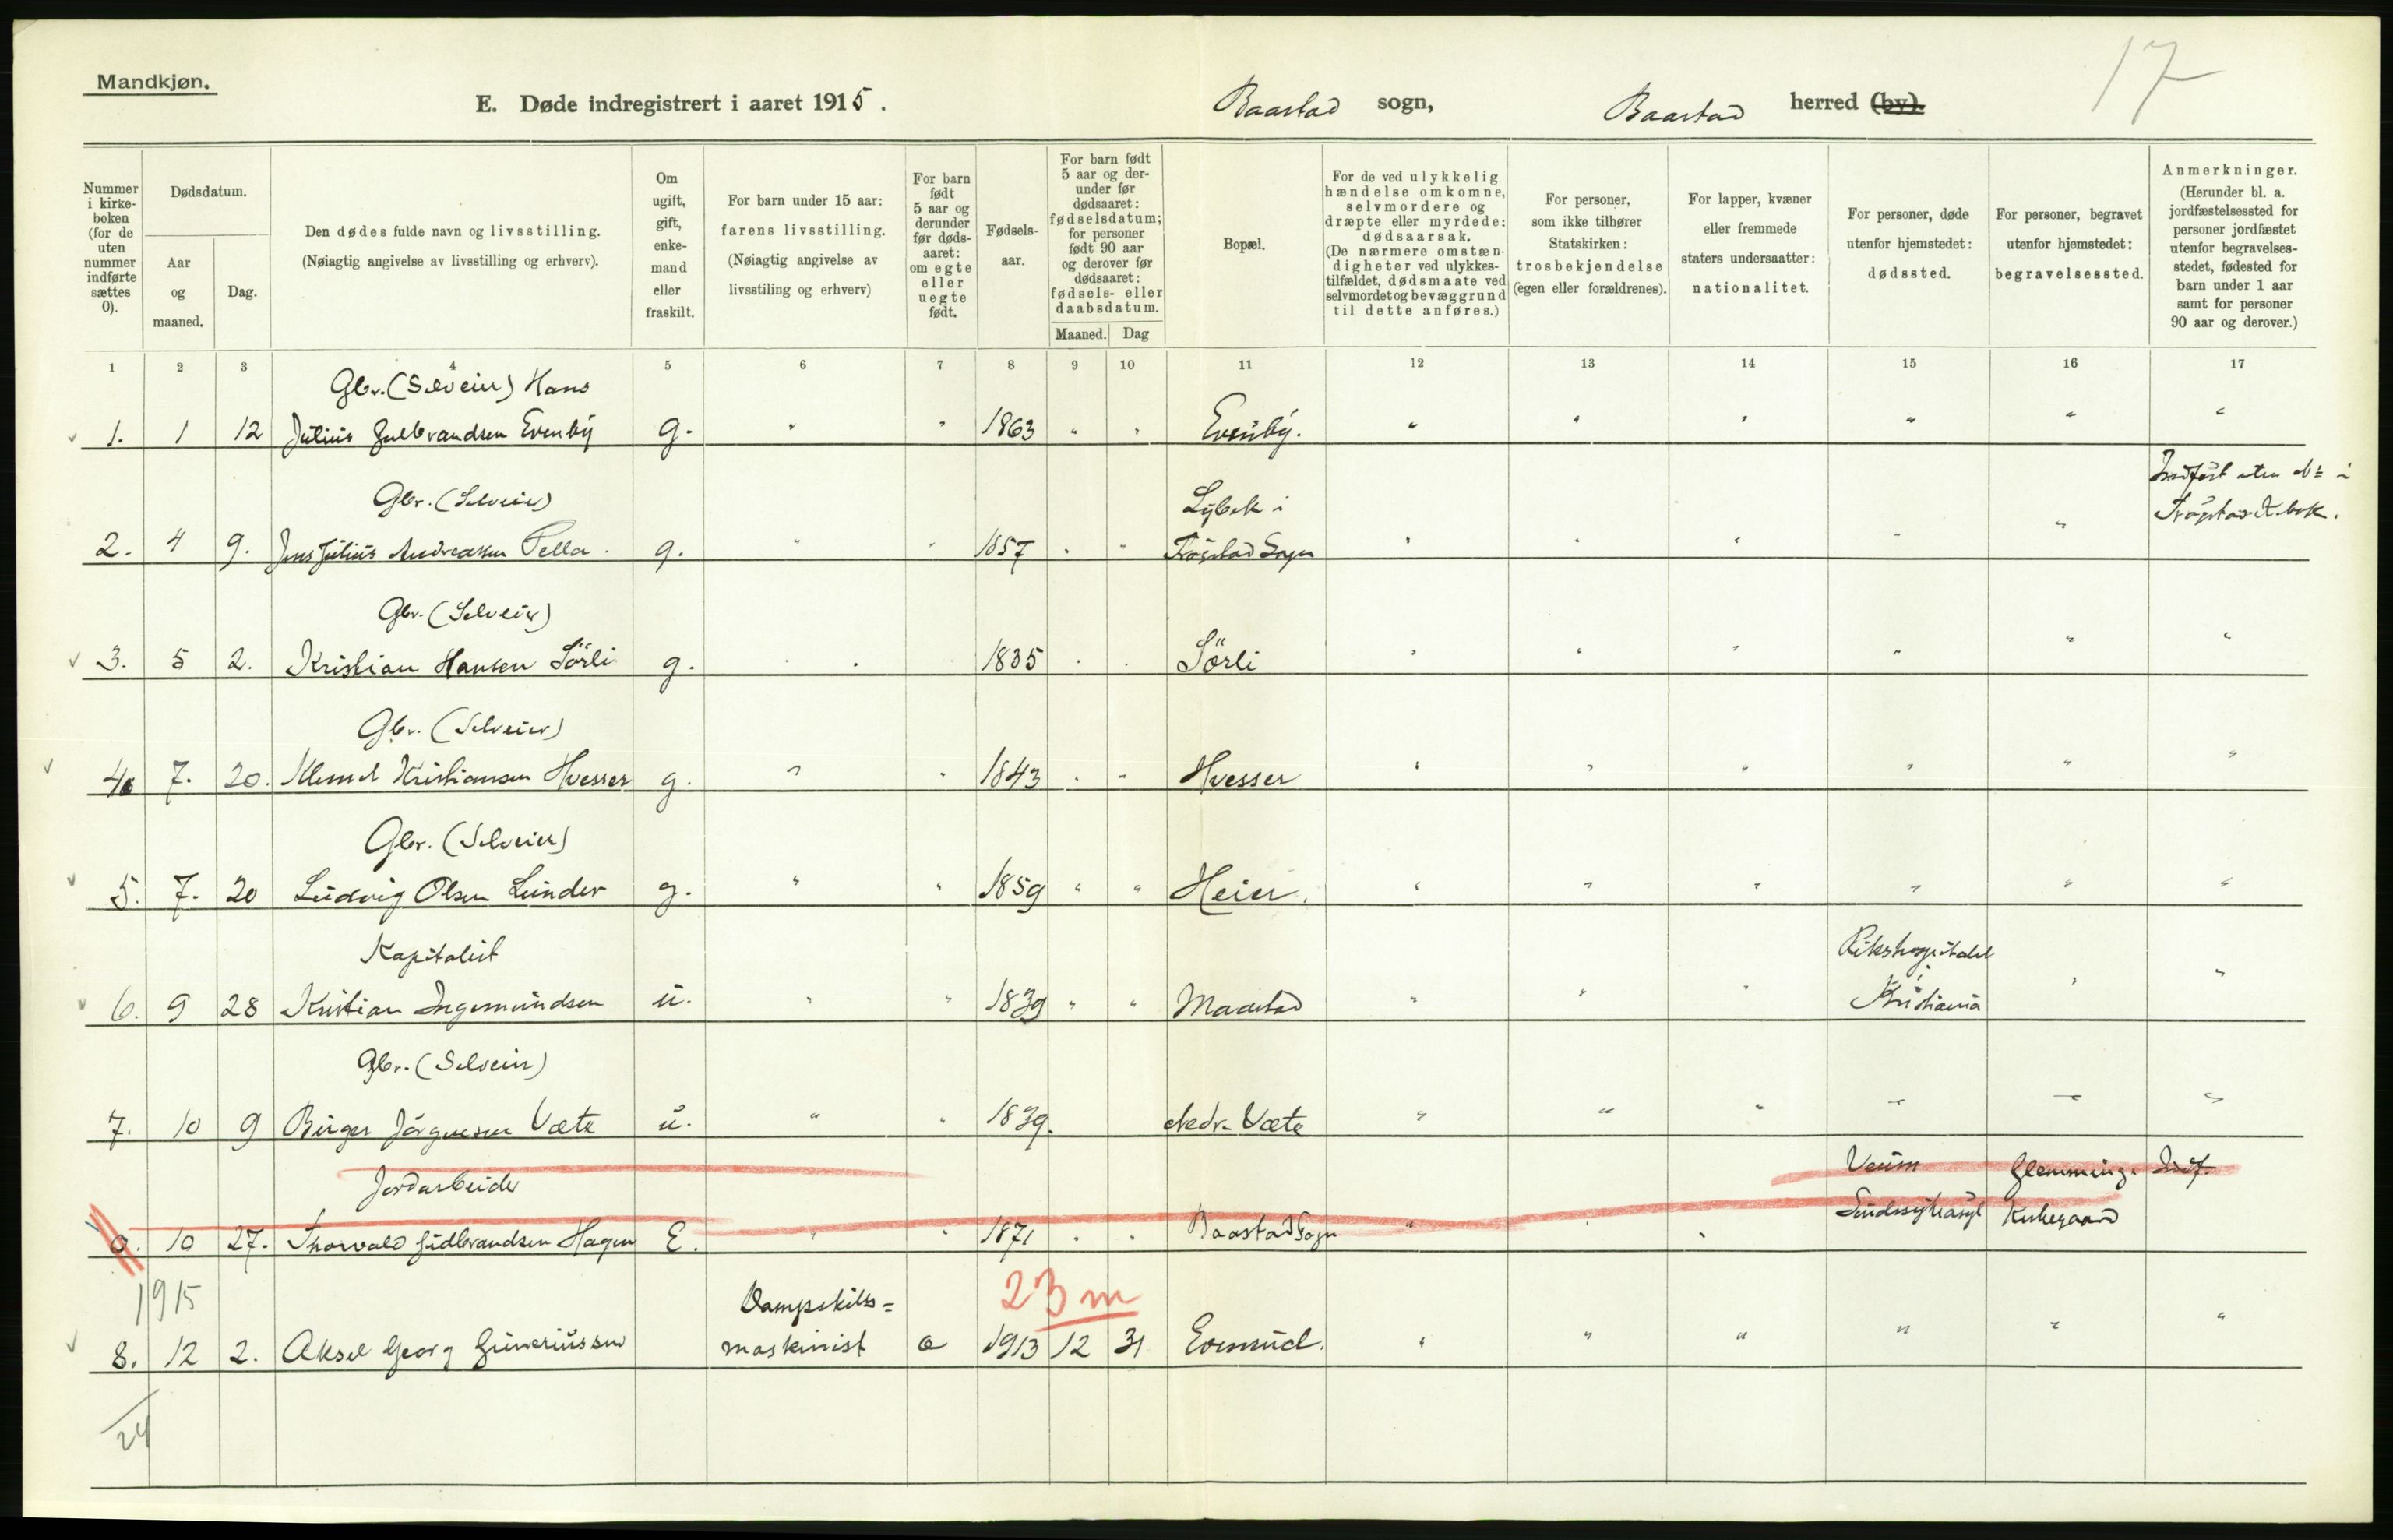 Mandkjøn.
17
E. Døde indregistrert i aaret 1915.
Baastad sogn, Baastad herred (by).
Nummer i kirke-boken (for de uten nummer indførte sættes 0).
Dødsdatum.
Aar og maaned.
Dag.
Den dødes fulde navn og livsstilling.
(Nøiagtig angivelse av livsstilling og erhverv).
Om ugift, gift, enke-mand eller fraskilt.
For barn under 15 aar: farens livsstilling. (Nøiagtig angivelse av livsstiling og erhverv)
For barn født 5 aar og derunder før døds-aaret: om egte eller uegte født.
Fødsels-aar.
For barn født 5 aar og der-under før dødsaaret: fødselsdatum; for personer født 90 aar og derover før dødsaaret: fødsels- eller daabsdatum.
Maaned. Dag
Bopæl.
For de ved ulykkelig hændelse omkomne, selvmordere og dræpte eller myrdede: dødsaarsak. (De nærmere omstæn-digheter ved ulykkes-tilfældet, dødsmaate ved selvmordet og bevæggrund til dette anføres.)
For personer, som ikke tilhører Statskirken: trosbekjendelse (egen eller forældrenes).
For lapper, kvæner eller fremmede staters undersaatter: nationalitet.
For personer, døde utenfor hjemstedet: dødssted.
For personer, begravet utenfor hjemstedet: begravelsessted.
Anmerkninger. (Herunder bl. a. jordfæstelsessted for personer jordfæstet utenfor begravelses-stedet, fødested for barn under 1 aar samt for personer 90 aar og derover.)
1 2 3 4 5 6 7 8 9 10 11 12 13 14 15 16 17
Gbr. (Selveier) Hans
1. 1 12 Julius Gulbrandsen Evenby g. " " 1863 " " Evenby. " " " " " "
Gbr. (Selveier) Lybek i Indført uten No i
2. 4 9. Jens Julius Andreasen Pella. g. " " 1857 " " Trøgstad Sogn " " " " " Trøgstad K.bok.
Gbr. (Selveier)
3. 5 2. Kristian Hansen Sörli g. 1835 Sörli " " " " " "
Gbr. (Selveier)
4. 7. 20. Klemet Kristiansen Hvesser g. " " 1843 " " Hvesser " " " " " "
Gbr. (Selveier)
5. 7. 20 Ludvig Olsen Lunder g. " " 1859 " " Heier. " " " " " "
Kapitalist Rikshospitalet i
6. 9 28 Kristian Ingemundsen u. " " 1839 " " Maastad " " " Kristiania " "
Gbr. (Selveier)
7. 10 9 Birger Jörgensen Væte u. " " 1839. Nedr. Væte " " " " " "
Jordarbeider Veum Glemminge Indf.
0. 10 27. Thorvald Gudbrandsen Hagen E. " " 1871 " " Baastad Sogn " " " Sindssykeasyl Kirkegaard
1915 Dampskibs= 23 m
8. 12 2. Aksel Georg Guneriussen maskinist e 1913 12 31 Evensrud. " " " " " "
24